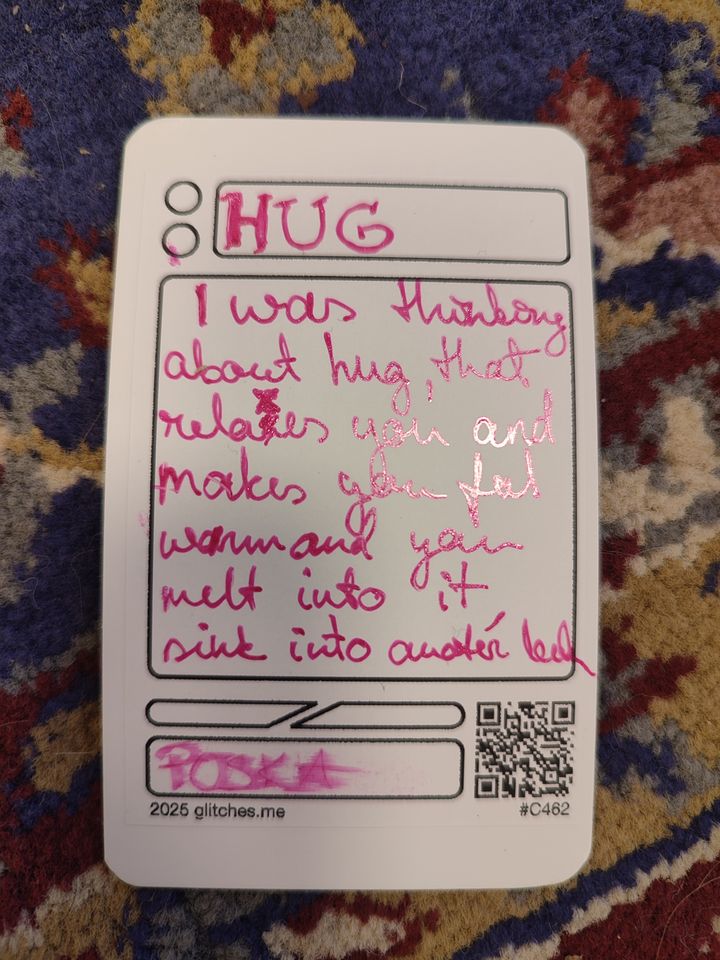 HUG
I was thinking
about hug, that
relaxes you and
makes you fal
warm and you
melt into it
sink into
POSKA
2025 glitches.me
#C462